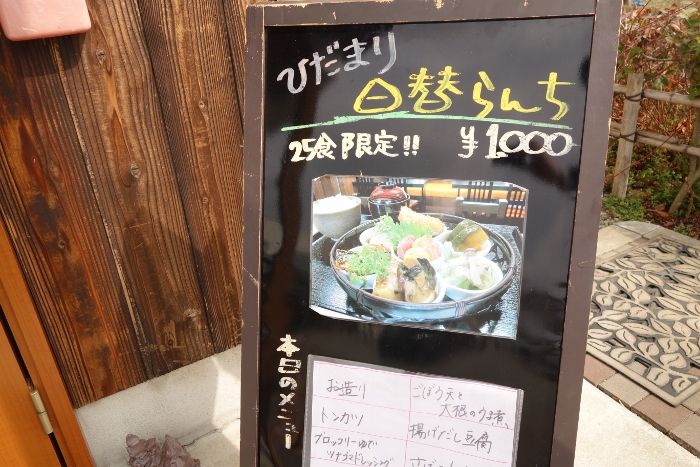 ひだまり
日替らんち
25食限定!! ¥1,000
本日のメニュー
お造り
トンカツ
ブロッコリーゆで
ツナゴマドレッシング
ごぼう天と
大根のうま煮
揚げだし豆腐